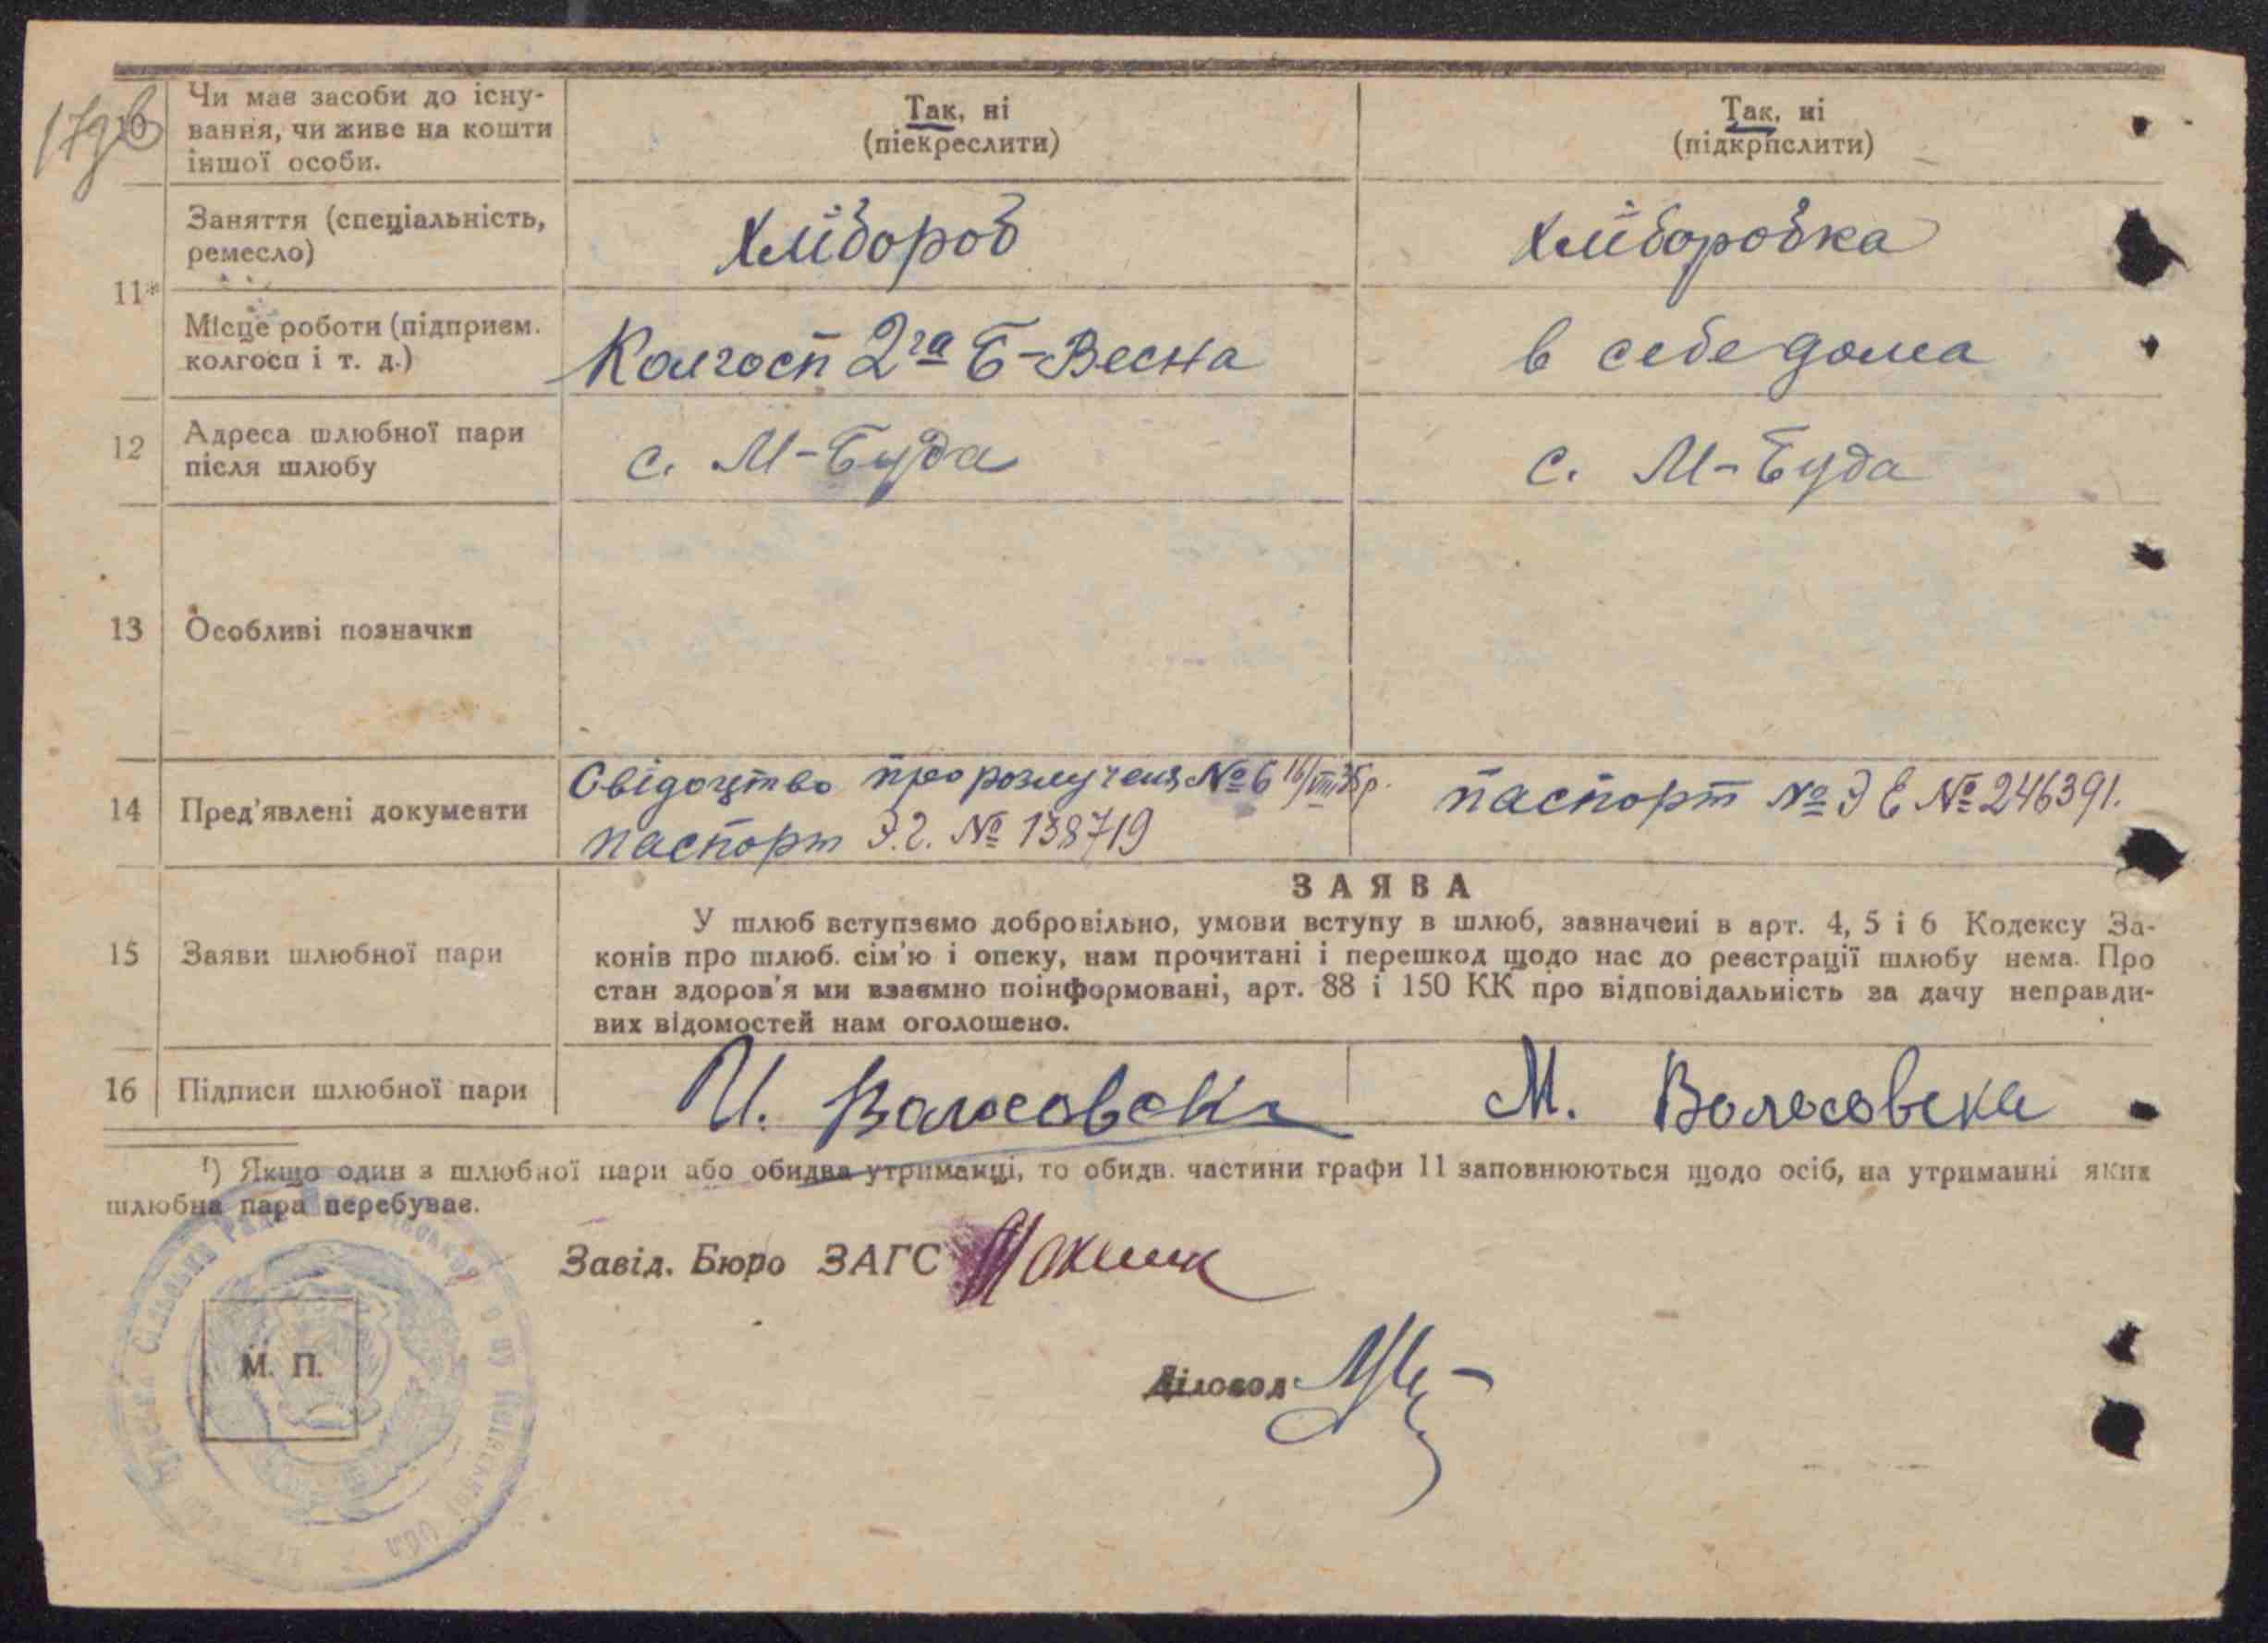 17зв
10
Чи має засоби до існу-
вання, чи живе на кошти
іншої особи.
Так, ні
(піекреслити)
Так, ні
(підкрпслити)
11*
Заняття (спеціальність,
ремесло)
Хлібороб
Хліборобка
Місце роботи (підприєм.
колгосп і т. д.)
Колгосп 2га Б-Весна
в себе дома
12
Адреса шлюбної пари
після шлюбу
с. М-Буда
с. М-Буда
13
Особливі позначки
14
Пред'явлені документи
Свідоцтво про розлученя № 6 16/VIII 35р.
паспорт Э.Г. № 138719
паспорт № Э Е № 246391.
15
Заяви шлюбної пари
ЗАЯВА
У шлюб вступаємо добровільно, умови вступу в шлюб, зазначені в арт. 4, 5 і 6 Кодексу За-
конів про шлюб. сім'ю і опеку, нам прочитані і перешкод щодо нас до реєстрації шлюбу нема. Про
стан здоров'я ми взаємно поінформовані, арт. 88 і 150 КК про відповідальність за дачу неправди-
вих відомостей нам оголошено.
16
Підписи шлюбної пари
И. Волосовск
М. Волосовска
¹) Якщо один з шлюбної пари або обидва утриманці, то обидв. частини графи 11 заповнюються щодо осіб, на утриманні яких
шлюбна пара перебуває.
Завід. Бюро ЗАГС
Діловод
М. П.
Сільська Рада